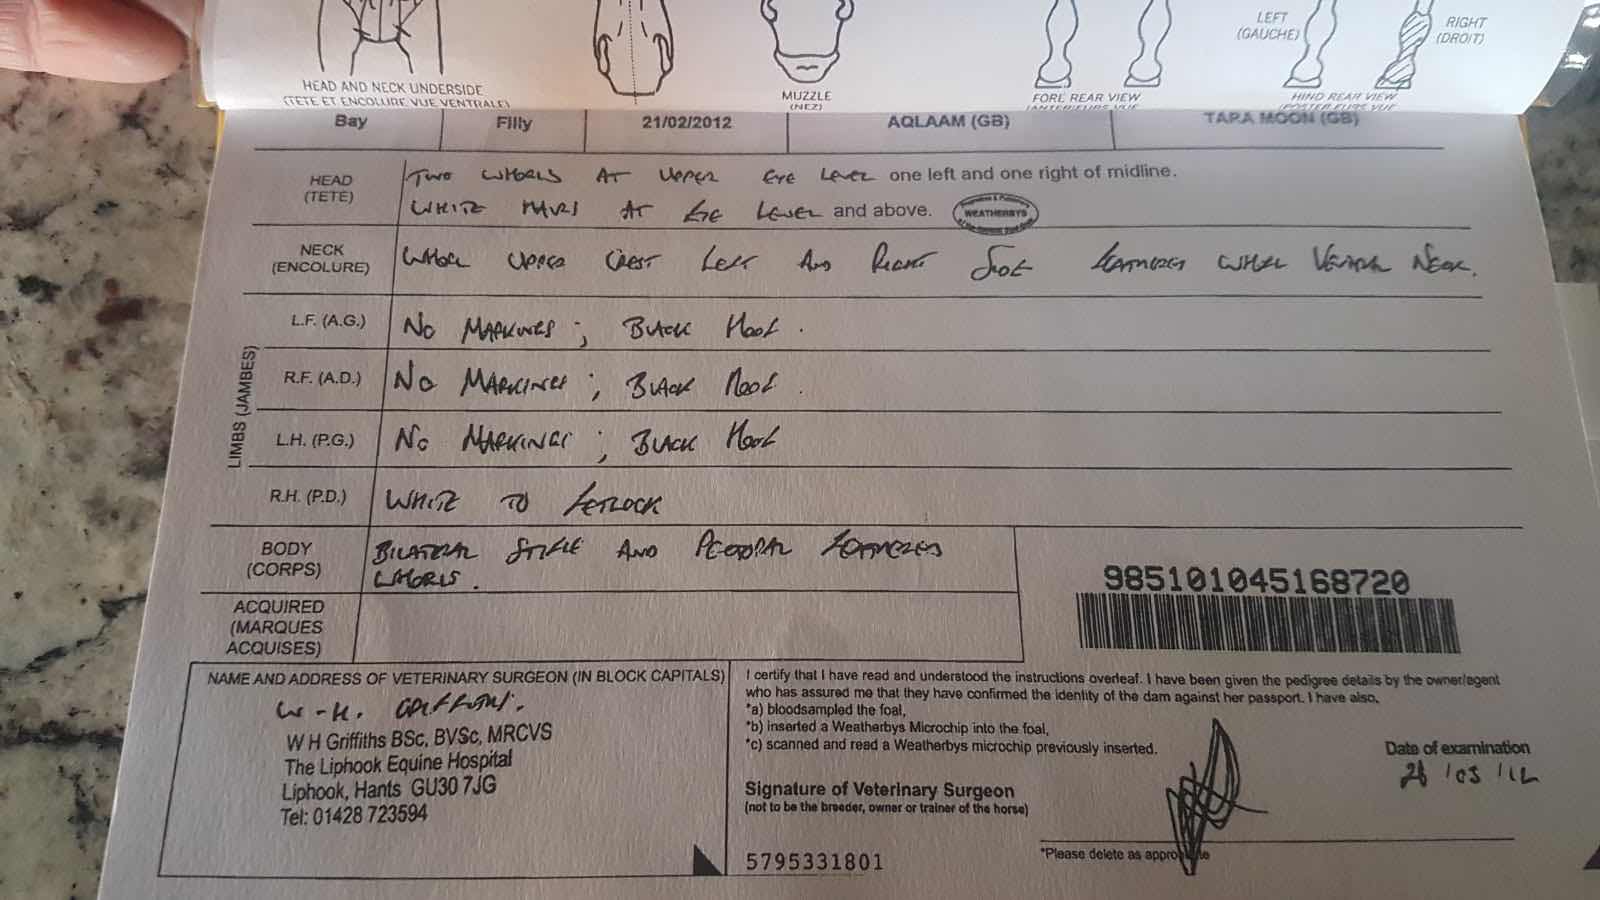 LEFT
(GAUCHE)
RIGHT
(DROIT)
HEAD AND NECK UNDERSIDE
(TETE ET ENCOLURE VUE VENTRALE)
MUZZLE
(NEZ)
FORE REAR VIEW
(ANTERIEURS VUE
HIND REAR VIEW
(POSTERIEURS VUE
Bay Filly 21/02/2012 AQLAAM (GB) TARA MOON (GB)
HEAD
(TETE)
TWO WHORLS AT UPPER EYE LEVEL one left and one right of midline.
WHITE HAIRS AT EYE LEVEL and above.
WEATHERBYS
NECK
(ENCOLURE)
WHORL UPPER CREST LEFT AND RIGHT SIDE FEATHERED WHORL VENTRAL NECK.
LIMBS (JAMBES)
L.F. (A.G.) NO MARKINGS ; BLACK HOOF .
R.F. (A.D.) NO MARKINGS ; BLACK HOOF .
L.H. (P.G.) NO MARKINGS ; BLACK HOOF
R.H. (P.D.) WHITE TO FETLOCK
BODY
(CORPS)
BILATERAL STIFLE AND PECTORAL FEATHERED
WHORLS.
985101045168720
ACQUIRED
(MARQUES
ACQUISES)
NAME AND ADDRESS OF VETERINARY SURGEON (IN BLOCK CAPITALS)
W-H. GRIFFITHS.
W H Griffiths BSc, BVSc, MRCVS
The Liphook Equine Hospital
Liphook, Hants GU30 7JG
Tel: 01428 723594
I certify that I have read and understood the instructions overleaf. I have been given the pedigree details by the owner/agent
who has assured me that they have confirmed the identity of the dam against her passport. I have also,
*a) bloodsampled the foal,
*b) inserted a Weatherbys Microchip into the foal,
*c) scanned and read a Weatherbys microchip previously inserted.
Date of examination
28/03/12
Signature of Veterinary Surgeon
(not to be the breeder, owner or trainer of the horse)
*Please delete as appropriate
5795331801